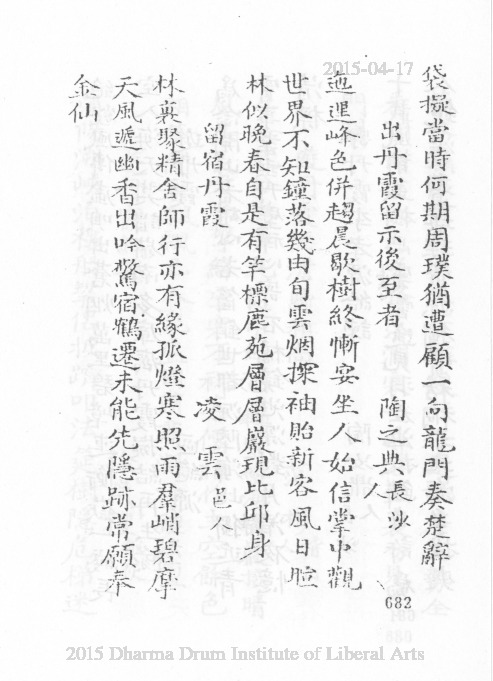 2015-04-17
袋擬當時何期周璞猶遭顧一向龍門奏楚辭
出丹霞留示後至者 陶之典長沙人
迤邐峰色併趨晨歇樹終慚安坐人始信掌中觀
世界不知鐘落幾由旬雲烟探袖貽新客風日暄
林似晚春自是有竿標鹿苑層層巖現比邱身
留宿丹霞 凌雲邑人
林裏聚精舍師行亦有緣孤燈寒照雨羣峭碧摩
天風遞幽香出吟驚宿鶴遷未能先隱跡常願奉
金仙
682
2015 Dharma Drum Institute of Liberal Arts